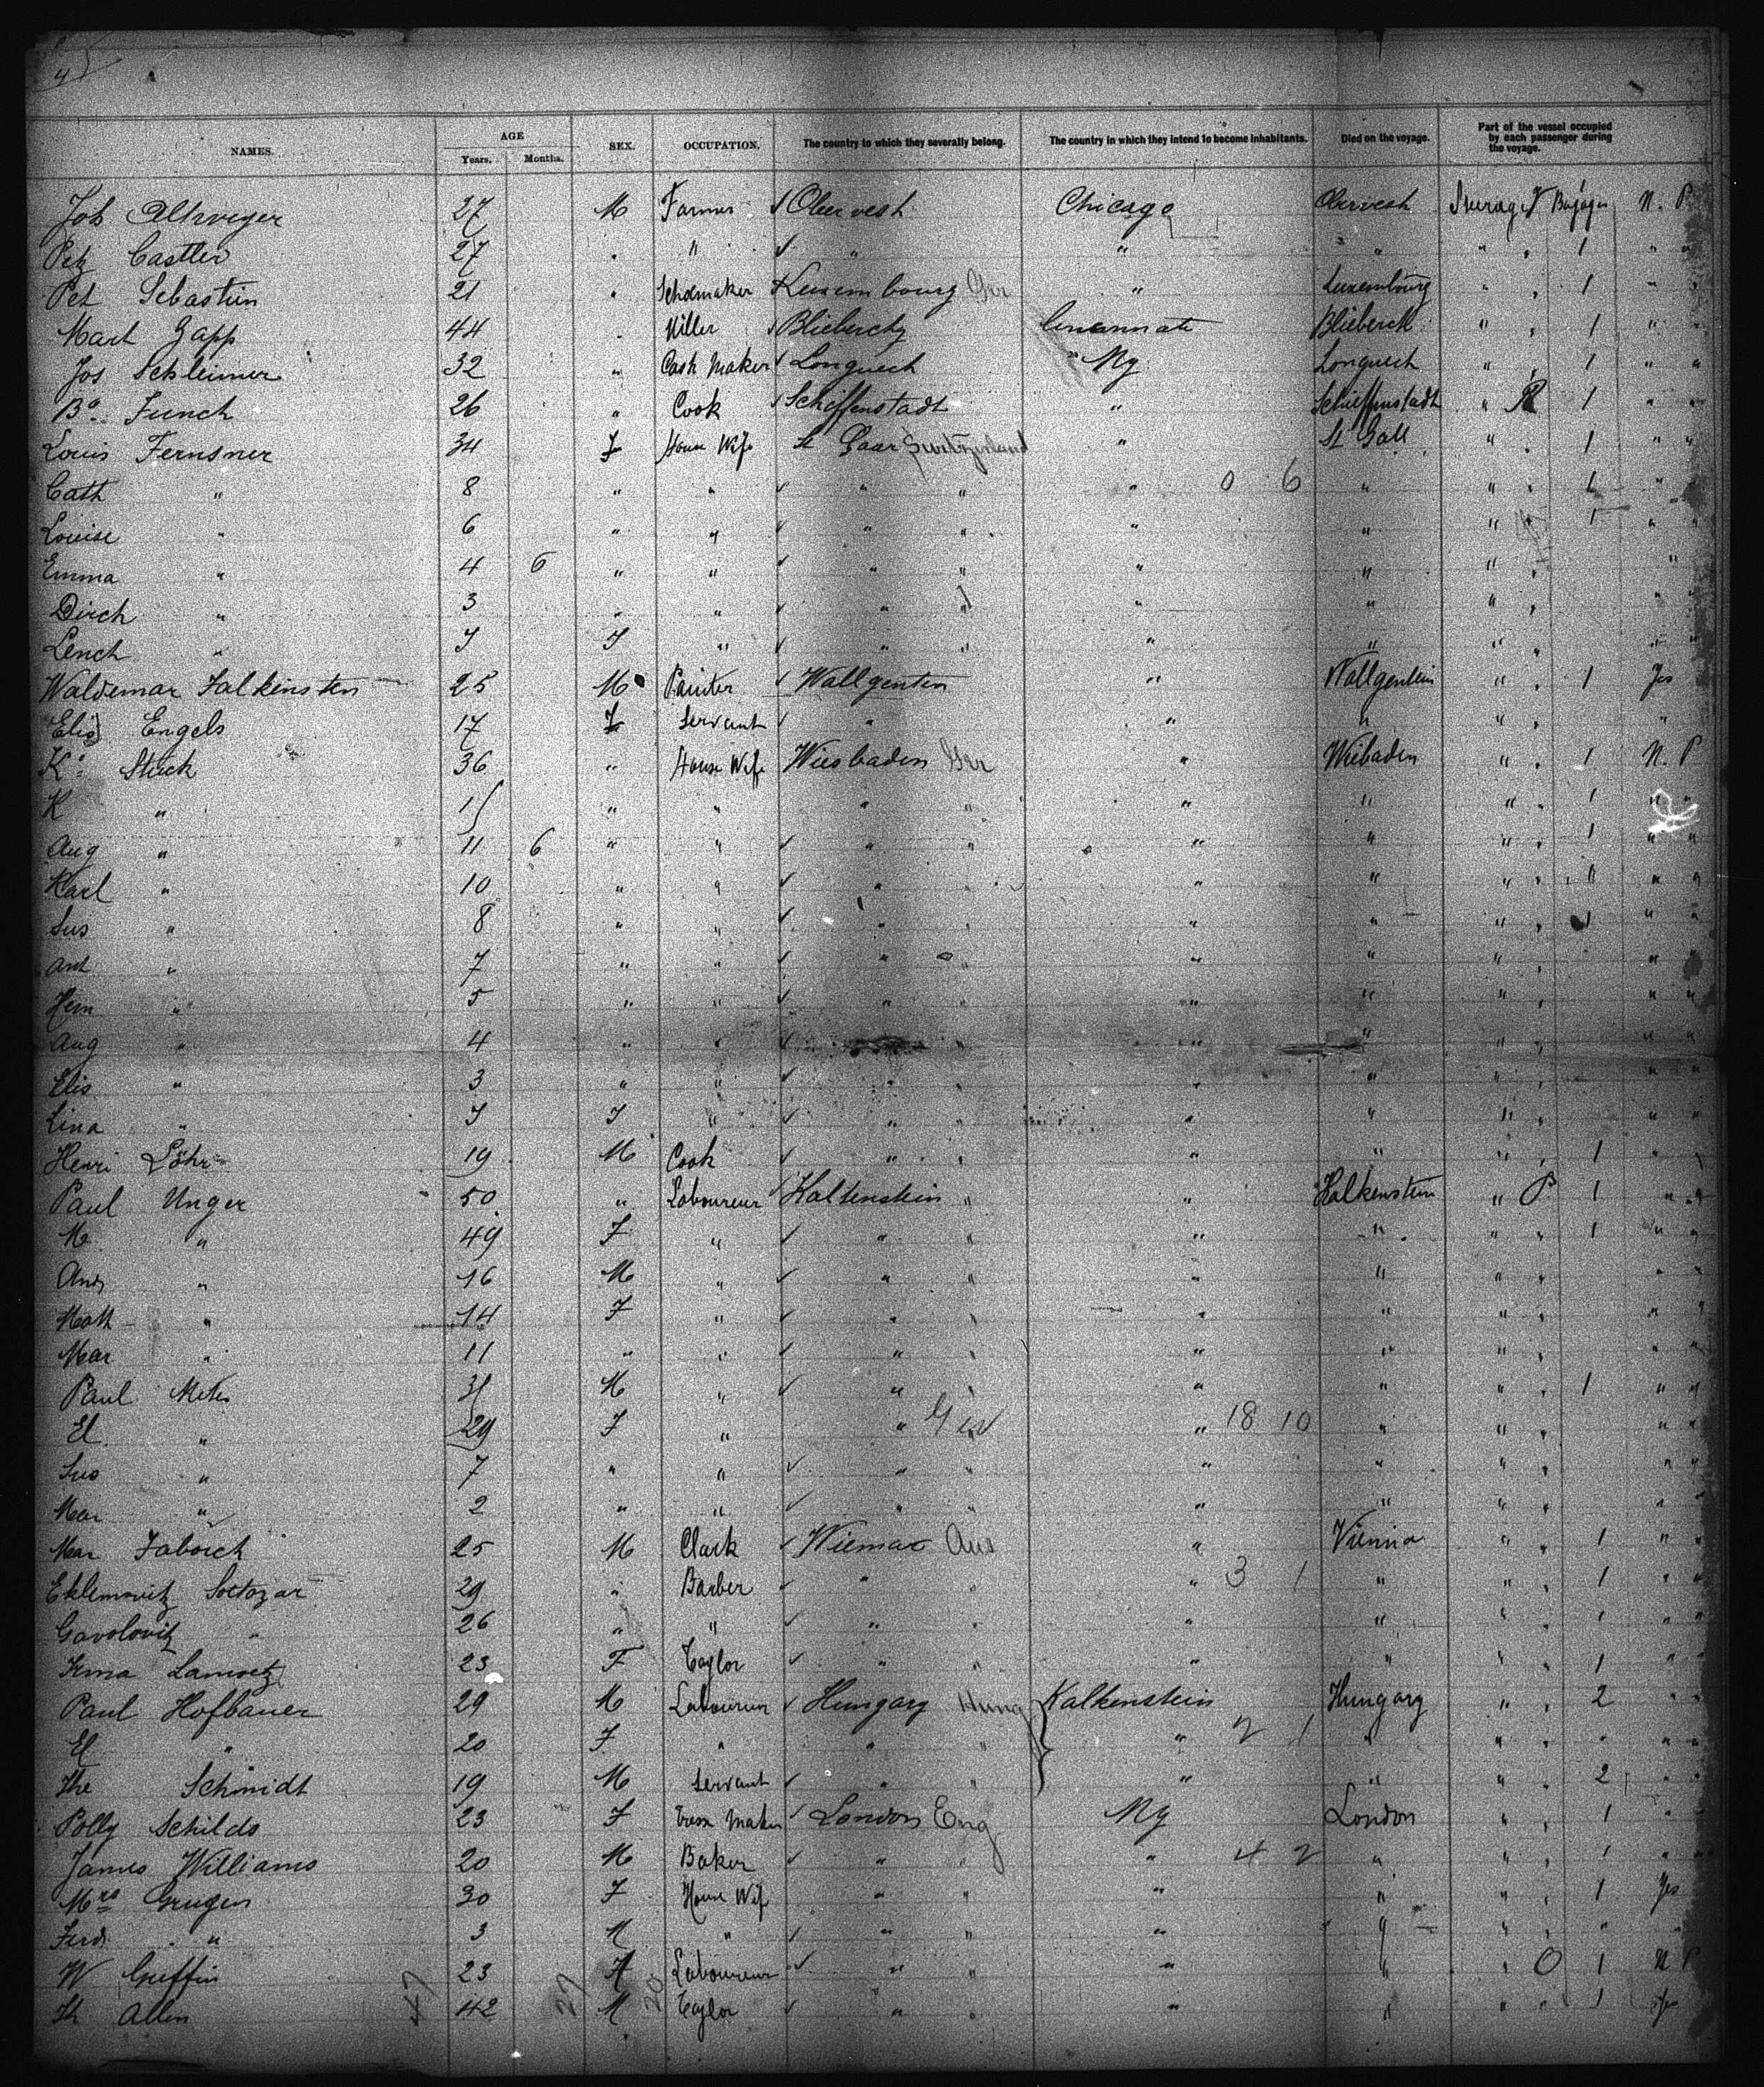 4
NAMES. AGE Years. Months. SEX. OCCUPATION. The country to which they severally belong. The country in which they intend to become inhabitants. Died on the voyage. Part of the vessel occupied by each passenger during the voyage.
Joh 27 M Farmer Chicago N. P
Pet Castler 27 " " " " " 1 " "
Pet Sebastien 21 " Schomaker Luxembourg Ger " Luxembourg " " 1 " "
Mart Zapp 44 " Miller Blieberchy Blieberch " " 1 " "
Jos Schleimer 32 " Cask Maker Longuech Ny Longuech " " 1 " "
Bd Funch 26 " Cook Schiffenstadt " Schieffenstadt " 1 " "
Louis Fernsner 34 F House Wife St Gaar Switzerland " St Gall " " 1 " "
Cath " 8 " " " " " 0 6 " " " 1 "
Louise " 6 " " " " " " " " 1 " "
Emma " 4 6 " " " " " " " " "
Dirch " 3 " " " " " " " " "
Lench " J J " " " " " " " " "
Waldemar Falkinsten 25 M Painter Wallgenten " Wallgentein " " 1 Yes
Elis Engels 17 F Servant " " " " " "
K. Stuck 36 " House Wife Wiesbaden Ger " Wiebaden " " 1 N. P
K " 1 " " " " " " " " 1 " "
Aug " 11 6 " " " " " " " " 1 " "
Karl " 10 " " " " " " " 1 " "
Sus " 8 " " " " " " " " 1 " "
Ant " 7 " " " " " " " " " "
Hem " 5 " " " " " " " " "
Aug " 4 " " " " " " " " "
Elis " 3 " " " " " " " " " "
Lina " J J " " " " " " " "
Henri Löhr 19 M Cook " " " " " " 1 " "
Paul Unger 50 " Laboureur Kaltenstein " " Halkenstein " P 1 " "
M " 49 F " " " " " " " 1 " "
And " 16 M " " " " " " " " "
Math " 14 F " " " " " " " " "
Mar " 11 " " " " " " " " " "
Paul Metes 31 M " " " " " " " 1 " "
El " 29 F " " " 18 10 " " " " "
Sus " 7 " " " " " " " " " "
Mar " 2 " " " " " " " " " "
Mar Faborch 25 M Clark Wiemar Aus " Vienna " " 1 " "
Eklemovitz Soltozar 29 " Barber " " " 3 1 " " " 1 " "
Gavolovitz " 26 " " " " " " " " 1 " "
Irma Lamvetz 23 F Taylor " " " " " " 1 " "
Paul Hofbauer 29 M Laboureur Hungary Hung Kalkenstein Hungary " " 2 " "
El " 20 F " " " " 2 1 " " " " " "
The Schmidt 19 M Servant " " " " " " 2 " "
Polly Schilds 23 F Dress Maker London Eng Ny London " " 1 "
James Williams 20 M Baker " " " 4 2 " " " 1 " "
Mrs Grugen 30 F House Wife " " " " " " 1 Yes
Ferd " 3 M " " " " " " " " "
W Griffin 23 Laboureur " " " " " O 1 N P
Th Allen 42 M Taylor " " " " " " 1 Yes
47 27 20